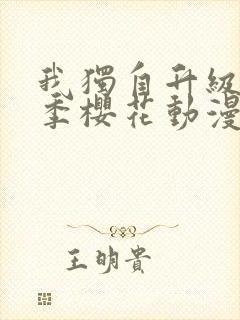 我獨自升級
季櫻花動漫
王明貴